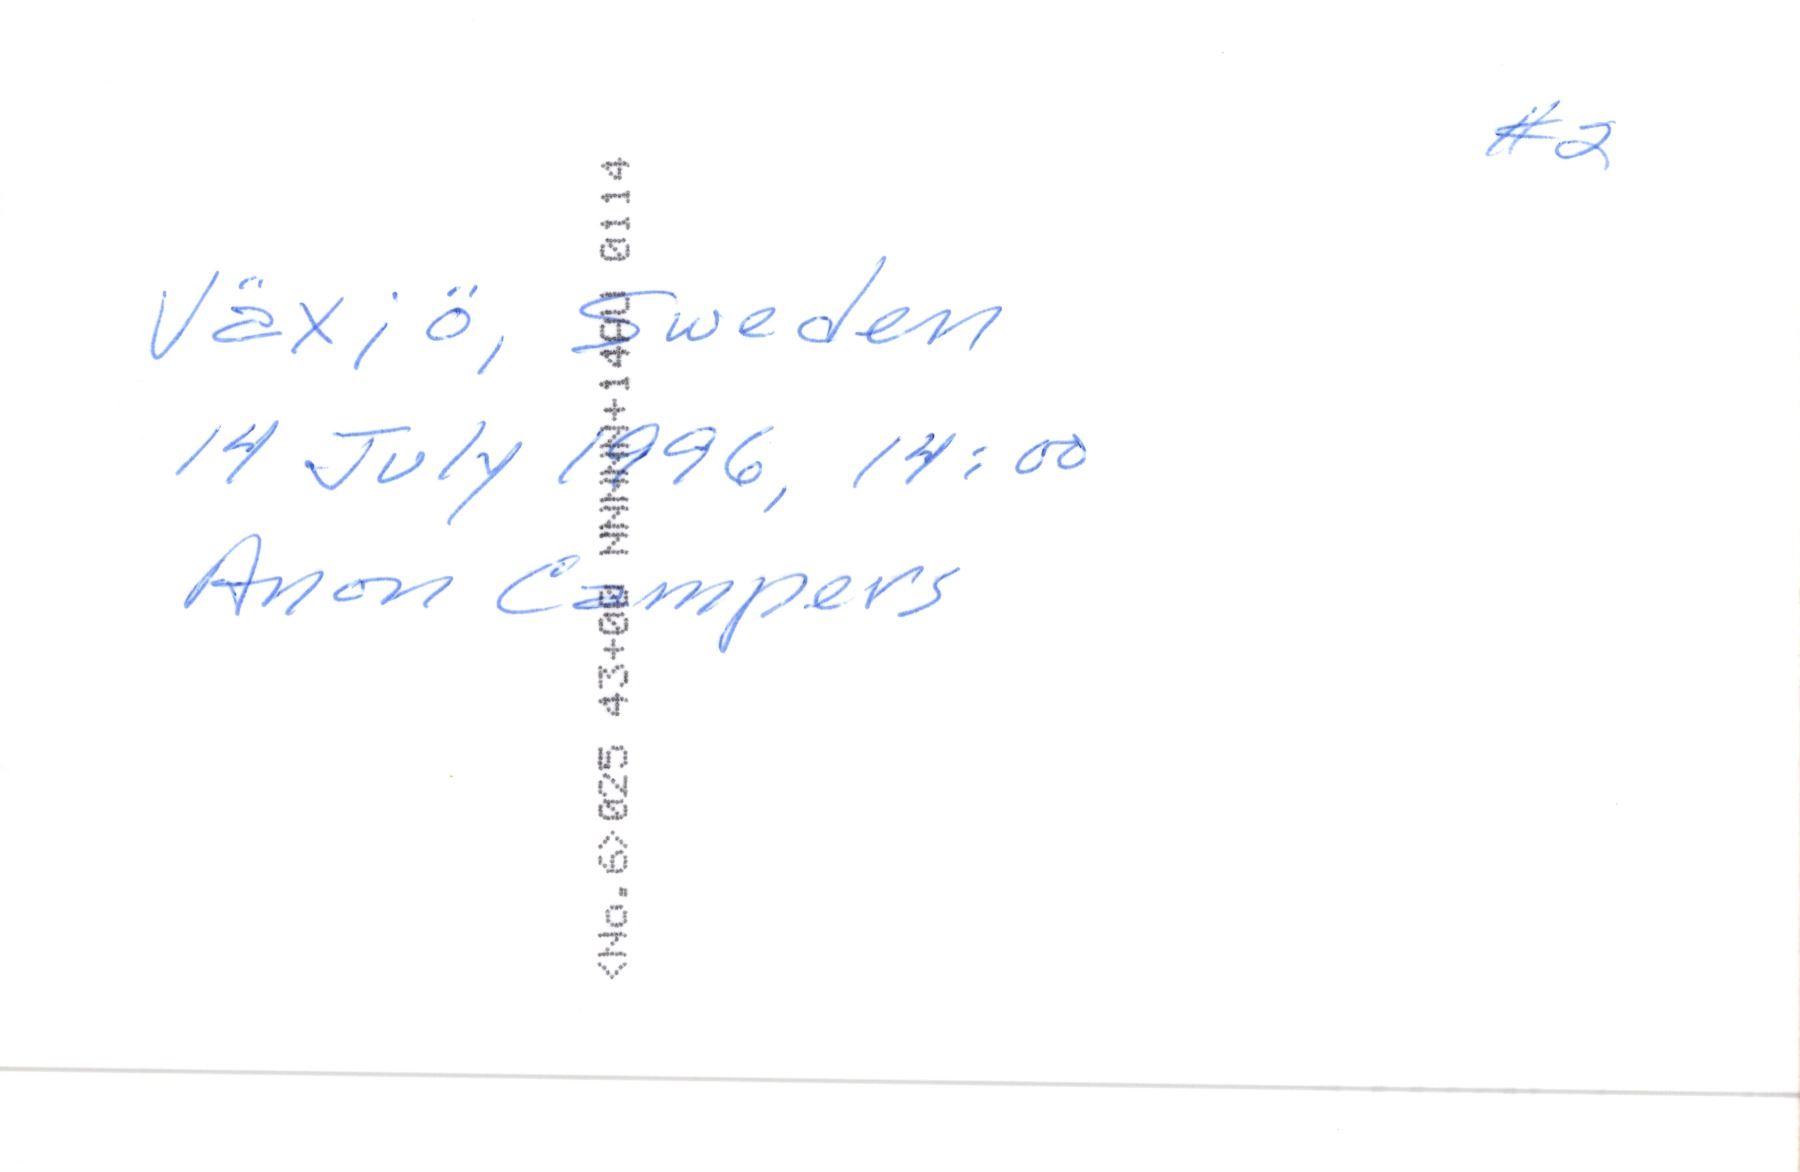 #2
Växjö, Sweden
14 July 1996, 14:00
Anon Campers
<No.6>025 43+00 0114